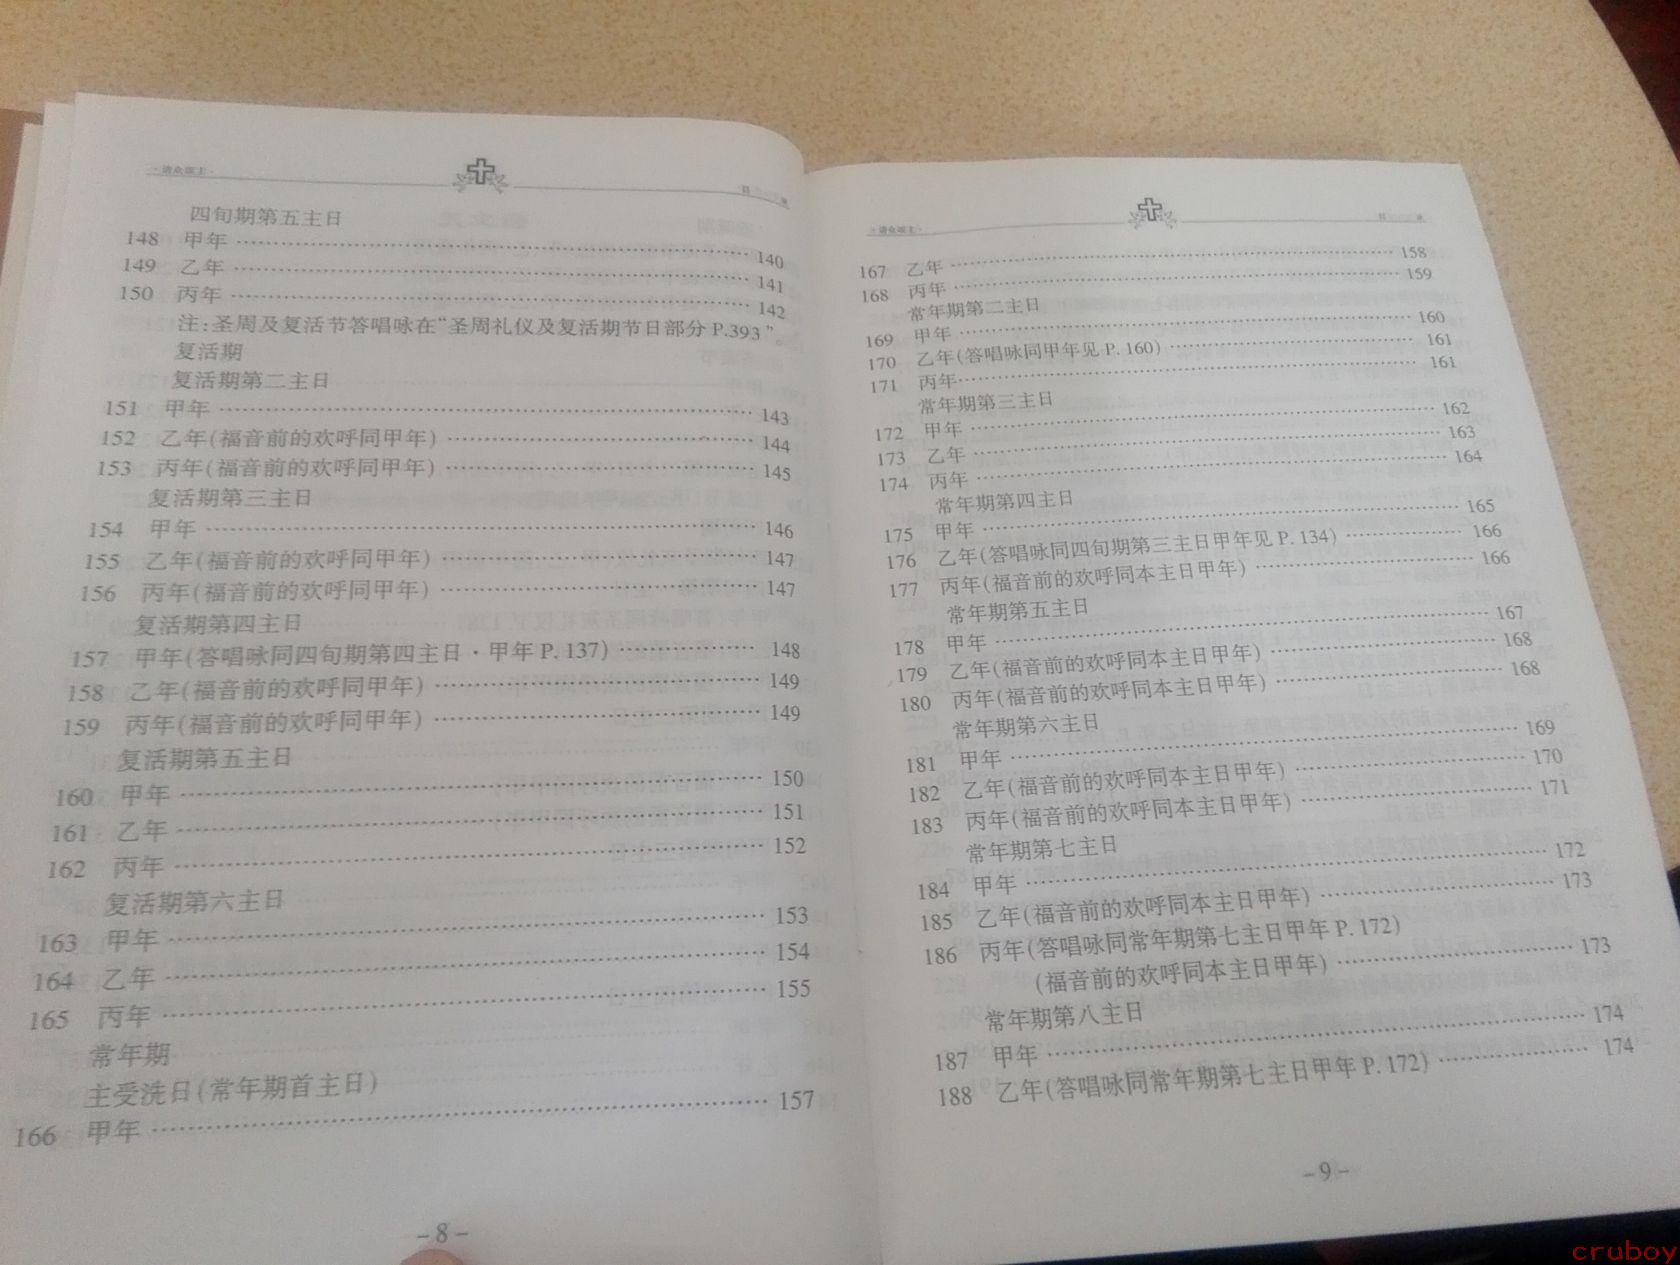 ·请众颂主·
目 录
四旬期第五主日
148 甲年 …… 140
149 乙年 …… 141
150 丙年 …… 142
注:圣周及复活节答唱咏在“圣周礼仪及复活期节日部分 P.393”。
复活期
复活期第二主日
151 甲年 …… 143
152 乙年(福音前的欢呼同甲年) …… 144
153 丙年(福音前的欢呼同甲年) …… 145
复活期第三主日
154 甲年 …… 146
155 乙年(福音前的欢呼同甲年) …… 147
156 丙年(福音前的欢呼同甲年) …… 147
复活期第四主日
157 甲年(答唱咏同四旬期第四主日·甲年 P. 137) …… 148
158 乙年(福音前的欢呼同甲年) …… 149
159 丙年(福音前的欢呼同甲年) …… 149
复活期第五主日
160 甲年 …… 150
161 乙年 …… 151
162 丙年 …… 152
复活期第六主日
163 甲年 …… 153
164 乙年 …… 154
165 丙年 …… 155
常年期
主受洗日(常年期首主日)
166 甲年 …… 157
– 8 –
·请众颂主·
目 录
167 乙年 …… 158
168 丙年 …… 159
常年期第二主日
169 甲年 …… 160
170 乙年(答唱咏同甲年见 P. 160) …… 161
171 丙年 …… 161
常年期第三主日
172 甲年 …… 162
173 乙年 …… 163
174 丙年 …… 164
常年期第四主日
175 甲年 …… 165
176 乙年(答唱咏同四旬期第三主日甲年见 P. 134) …… 166
177 丙年(福音前的欢呼同本主日甲年) …… 166
常年期第五主日
178 甲年 …… 167
179 乙年(福音前的欢呼同本主日甲年) …… 168
180 丙年(福音前的欢呼同本主日甲年) …… 168
常年期第六主日
181 甲年 …… 169
182 乙年(福音前的欢呼同本主日甲年) …… 170
183 丙年(福音前的欢呼同本主日甲年) …… 171
常年期第七主日
184 甲年 …… 172
185 乙年(福音前的欢呼同本主日甲年) …… 173
186 丙年(答唱咏同常年期第七主日甲年 P. 172)
(福音前的欢呼同本主日甲年) …… 173
常年期第八主日
187 甲年 …… 174
188 乙年(答唱咏同常年期第七主日甲年 P. 172) …… 174
– 9 –
cruboy